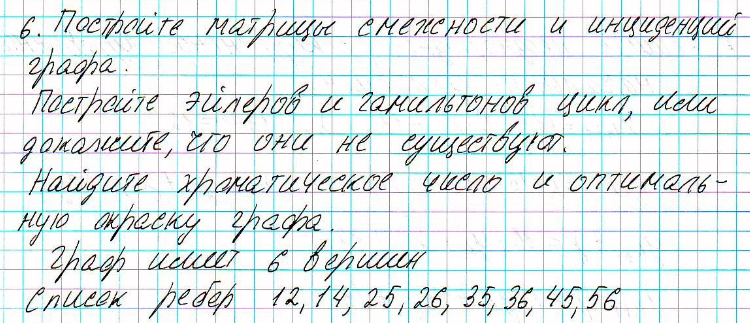 6. Постройте матрицы смежности и инциденций
графа.
Постройте эйлеров и гамильтонов цикл, или
докажите, что они не существуют.
Найдите хроматическое число и оптималь-
ную окраску графа.
Граф имеет 6 вершин
Список ребер 12, 14, 25, 26, 35, 36, 45, 56